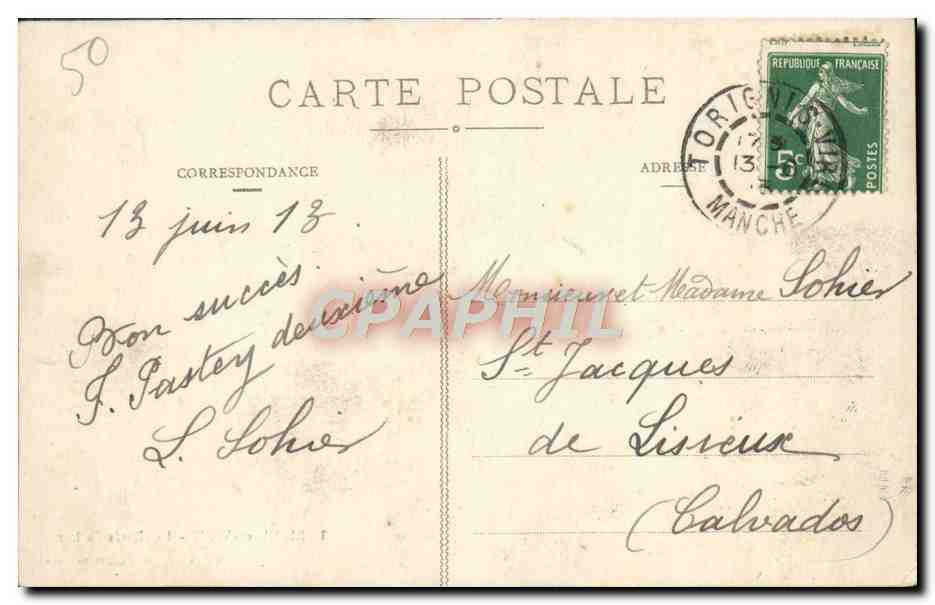 50
CARTE POSTALE
CORRESPONDANCE
13 juin 13
Bon succès.
F. Pastey deuxième
L. Sohier
ADRESSE
Monsieur et Madame Sohier
St Jacques
de Lisieux
(Calvados)
REPUBLIQUE FRANÇAISE
5c
POSTES
TORIGNI-S-VIRE
13 -6
MANCHE
CPAPHIL